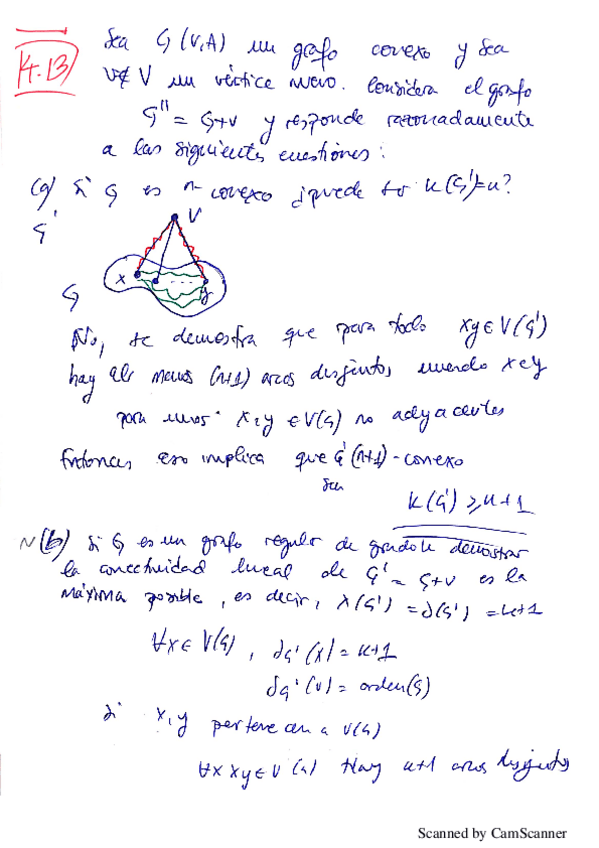 4.13)
Sea G (V,A) un grafo conexo y sea
v∉V un vértice nuevo. Considera el grafo
G'' = G+v y responde razonadamente
a las siguientes cuestiones:
(a) Si G es n-conexo ¿puede ser k(G')=n?
G'
V
x
y
G
No, se demostra que para todo xy∈V(G')
hay al menos (n+1) arcos disjuntos uniendo x e y
para unos x,y ∈V(G) no adyacentes
Entonces eso implica que G' (n+1)-conexo
k(G') ≥ n+1
(b) Si G es un grafo regular de grado k demostrar
la conectividad lineal de G' = G+v es la
máxima posible, es decir, λ(G') = δ(G') = k+1
∀x∈V(G), δG'(x) = k+1
δG'(v) = orden(G)
Si x,y pertenecen a V(G)
∀x xy∈V(G) Hay k+1 arcos disjuntos
Scanned by CamScanner